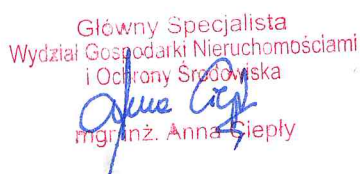 Główny Specjalista
Wydział Gospodarki Nieruchomościami
i Ochrony Środowiska
Anna Ciepły
mgr inż. Anna Ciepły